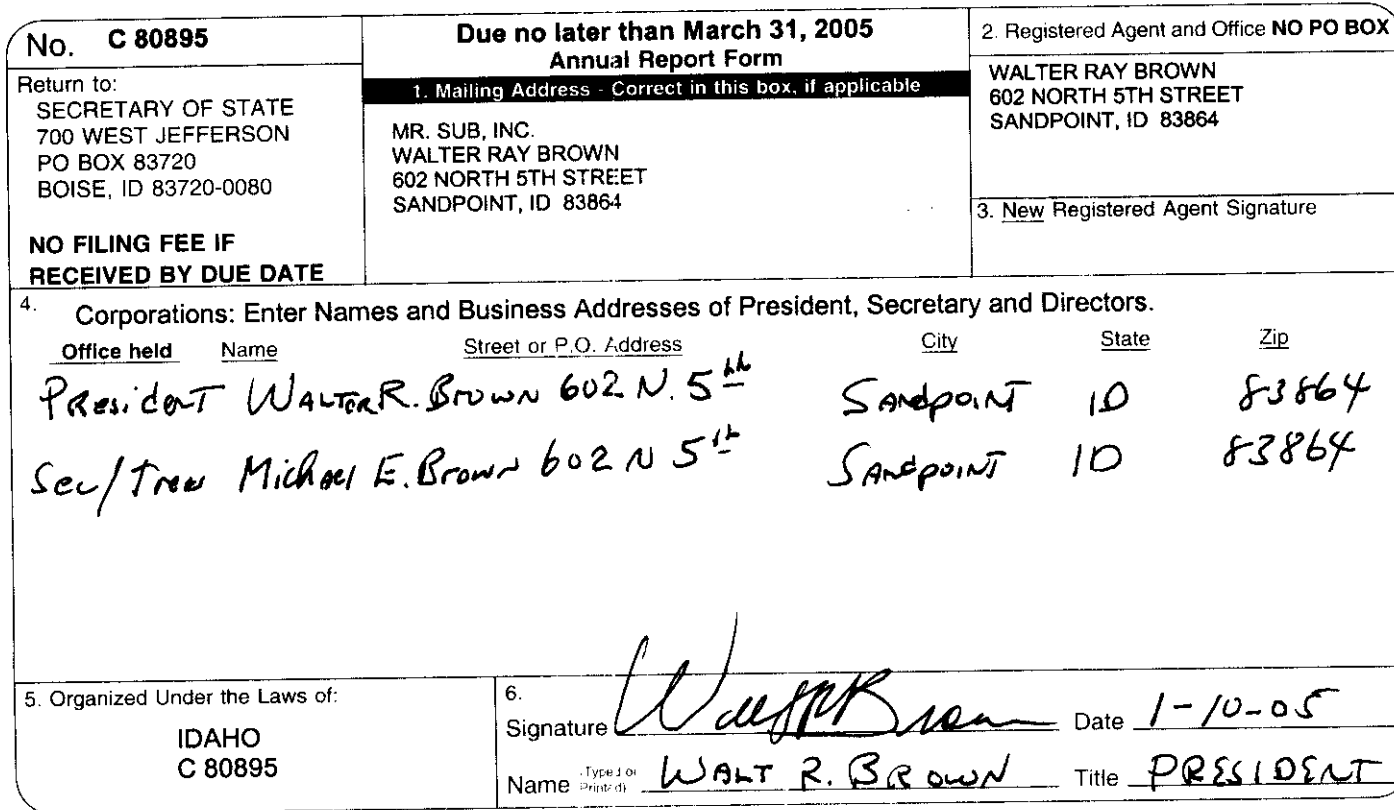 No. C 80895
Return to:
SECRETARY OF STATE
700 WEST JEFFERSON
PO BOX 83720
BOISE, ID 83720-0080
NO FILING FEE IF
RECEIVED BY DUE DATE
Due no later than March 31, 2005
Annual Report Form
1. Mailing Address - Correct in this box, if applicable
MR. SUB, INC.
WALTER RAY BROWN
602 NORTH 5TH STREET
SANDPOINT, ID 83864
2. Registered Agent and Office NO PO BOX
WALTER RAY BROWN
602 NORTH 5TH STREET
SANDPOINT, ID 83864
3. New Registered Agent Signature
4. Corporations: Enter Names and Business Addresses of President, Secretary and Directors.
Office held Name Street or P.O. Address City State Zip
President Walter R. Brown 602 N. 5th Sandpoint ID 83864
Sec/Treas Michael E. Brown 602 N 5th Sandpoint ID 83864
5. Organized Under the Laws of:
IDAHO
C 80895
6.
Signature Walt R Brown Date 1-10-05
Name (Typed or Printed) WALT R. BROWN Title PRESIDENT